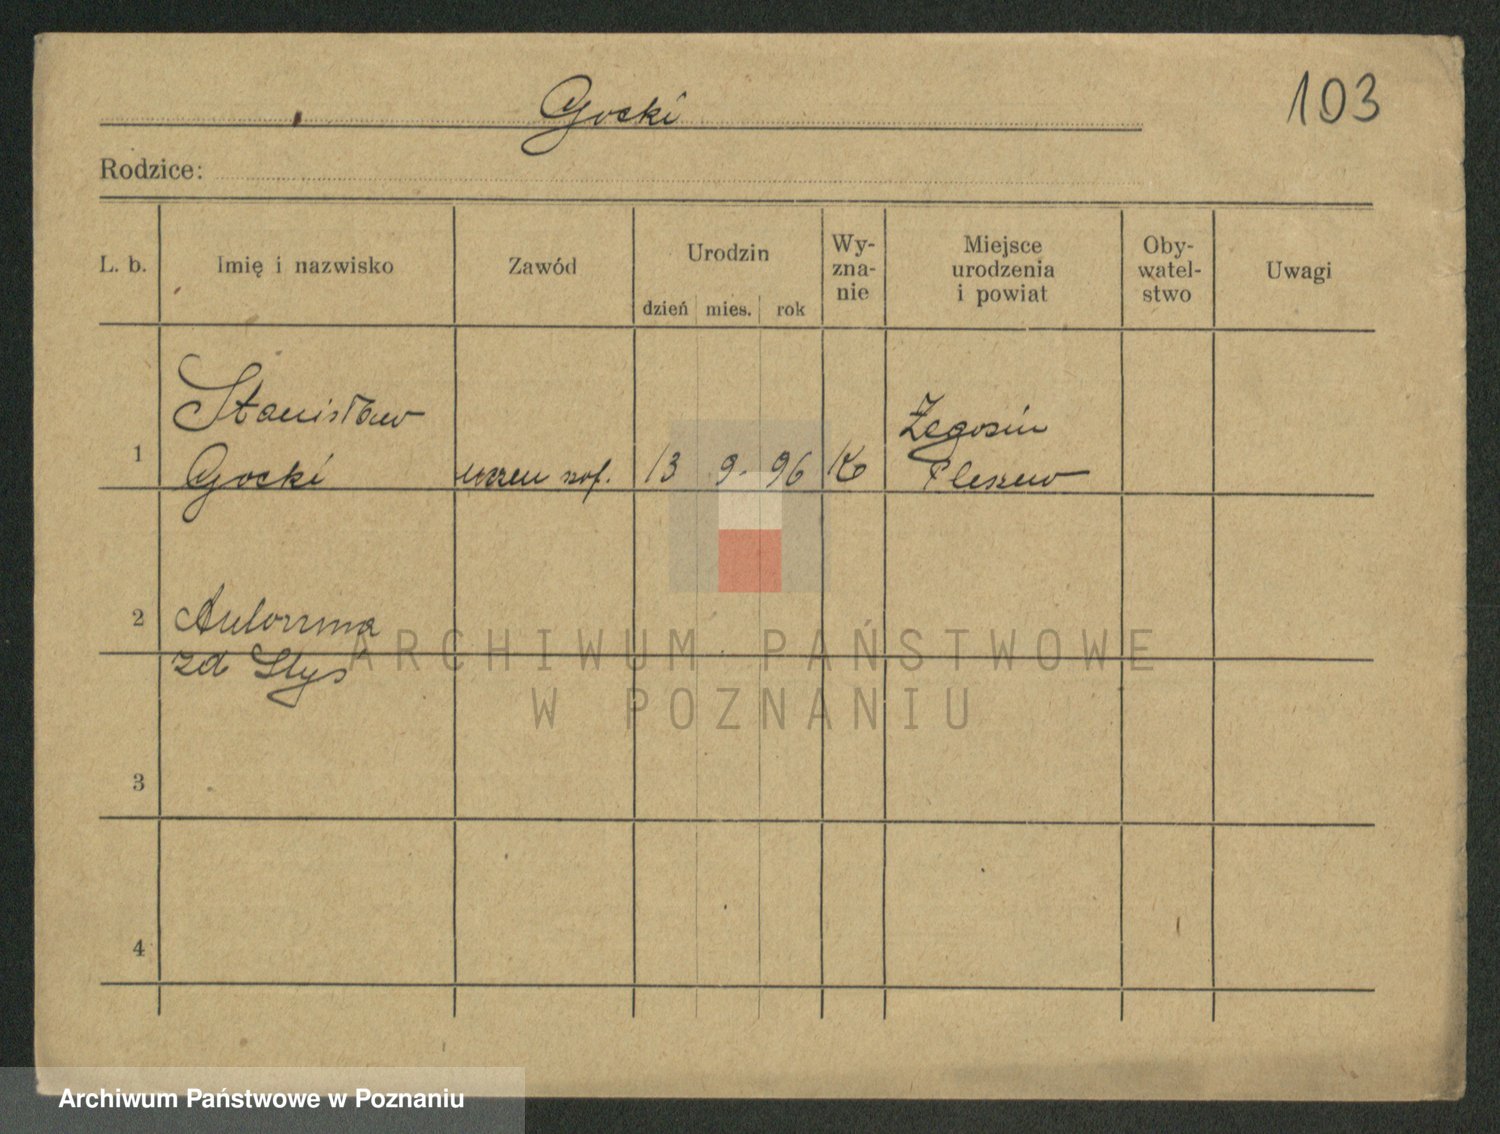 103
Gocki
Rodzice:
L. b.
Imię i nazwisko
Zawód
Urodzin
dzień mies. rok
Wy-
zna-
nie
Miejsce
urodzenia
i powiat
Oby-
watel-
stwo
Uwagi
1
Stanisław
Gocki
13 9. 96 K
Pleszew
2
Antonina
zd Styś
3
4
ARCHIWUM PAŃSTWOWE
W POZNANIU
Archiwum Państwowe w Poznaniu